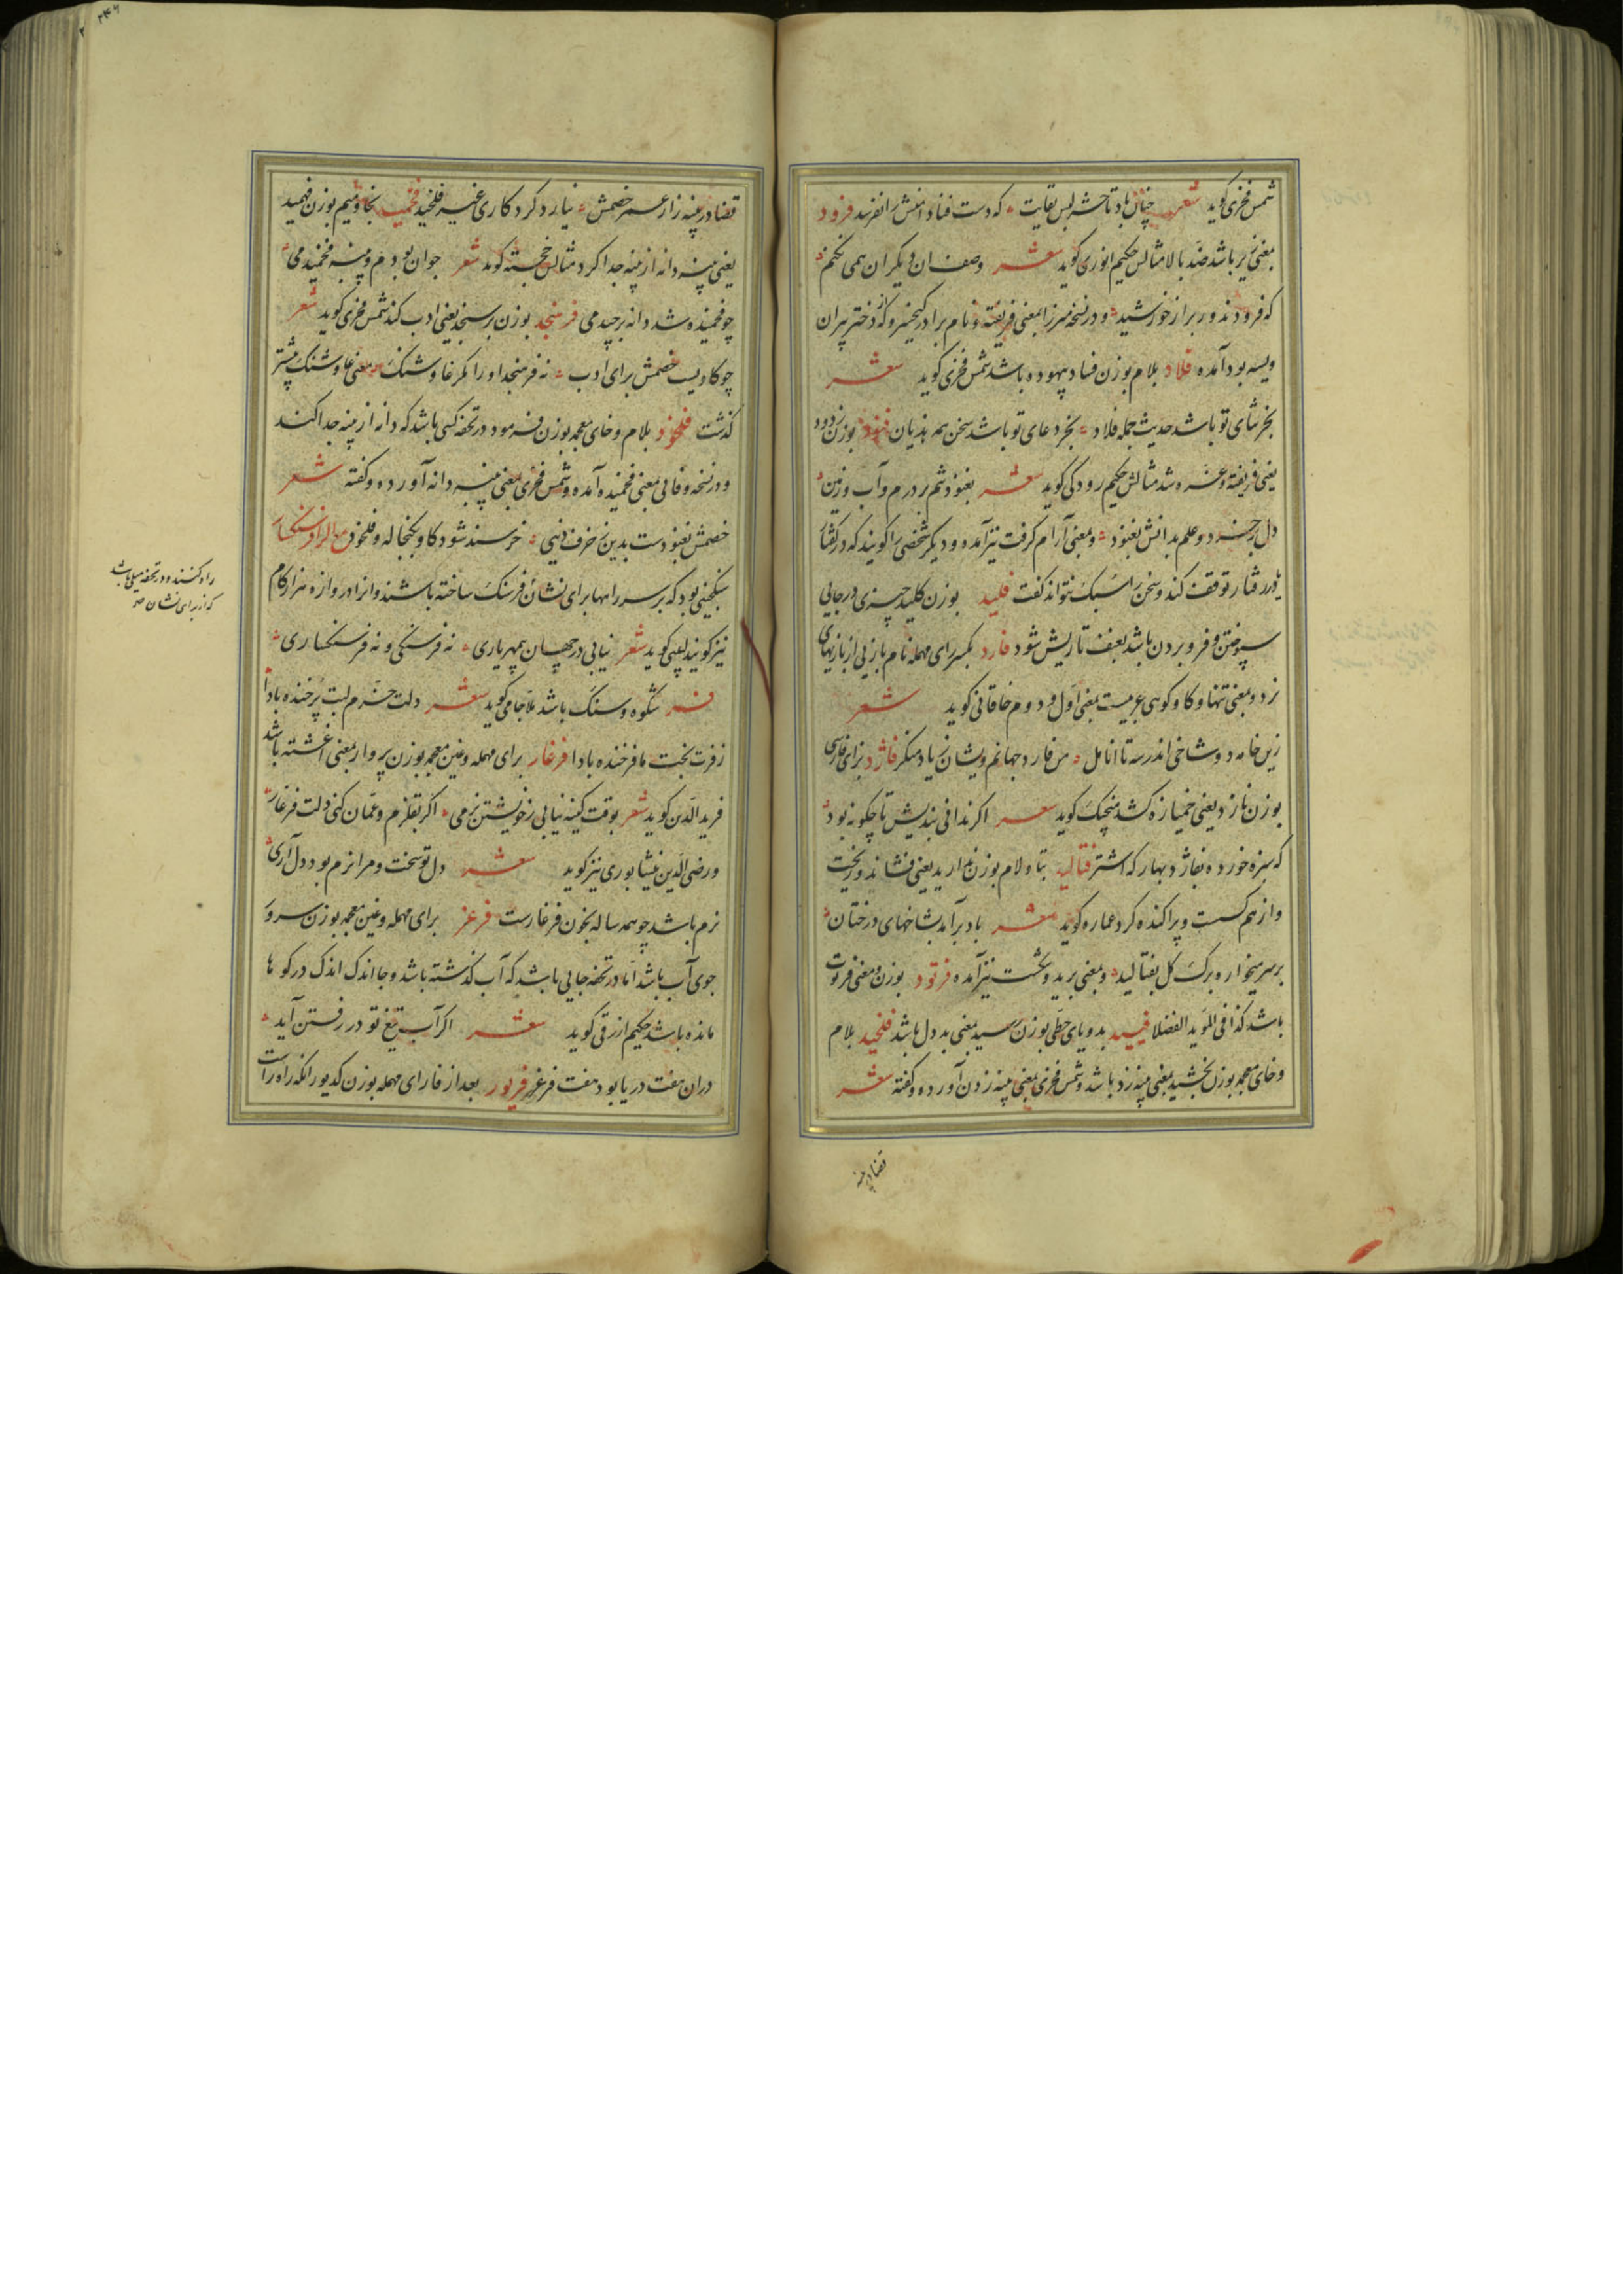 شمس فخری کوید شعر چنان باد تا حشر لبس بقایت که دست فنا دامنش را نفرند فرود
بمعنی زیر باشد ضد بالا مثالش حکیم انوری کوید شعر وصف ان دیکران همی نکنم
که فرودند و ربراز خورشید و در نسخه میرزا بمعنی فریفته و نام برادر کیخسرو که از دختر پیران
ویسه بود آمده فلاد بلام بوزن فساد بیهوده باشد شمس فخری کوید شعر
بخر ثنای تو باشد حدیث جمله فلاد بخر دعای تو باشد سخن همه هذیان فنود بوزن درود
یعنی فریفته و غره شد مثالش حکیم رودکی کوید شعر بغنود تنم بر درم و آب و زمین
دل بر خرد و علم بدانش بغنود و بمعنی آرام کرفت نیز آمده و دیکر شخصی را کویند که در کفتار
یا در رفتار توقف کند و سخن را سبک نتواند کفت فلید بوزن کلید چیزی در جایی
سپوختن و فرو بردن باشد بعنف تا ریش شود فارد بکسر رای مهمله نام بازیی از بازیهای
نرد و بمعنی تنها و کاو کوهی عربیست بمعنی اول و دوم خاقانی کوید شعر
زین خامه دو شاخی اندر سه تا انامل من فارد جهانم ویشان زیاد منکر فاژد بزای فارسی
بوزن نازد یعنی خمیازه کشد منجیک کوید شعر اکر ندانی بندیش تا چکونه بود
که سبزه خورده بفاژد بهار که اشتر فتالید بتا و لام بوزن ندارید یعنی فشاند و ریخت
و از هم کسست و پراکنده کرد عماره کوید شعر باد برآمد بشاخهای درختان
بر سر میخواره برک کل بفتالید و بمعنی برید و کشت نیز آمده فرتود بوزن و معنی فرتوت
باشد کذا فی الموید الفضلا فیید بدو یای حطی بوزن رسید بمعنی بد دل باشد فلخید بلام
و خای معجمه بوزن بخشید بمعنی پنبه زد باشد و شمس فخری بمعنی پنبه زدن آورده و کفته شعر
قضا در پنبه
قضا در پنبه زار عمر خصمش نیارد کرد کاری غیر فلخید فخمید بخا و میم بوزن فهمید
یعنی پنبه دانه از پنبه جدا کرد مثالش خجسته کوید شعر جوان بودم و پنبه فخمیدمی
چو فخمیده شد دانه برچیدمی فرهنجد بوزن برسنجد یعنی ادب کند شمس فخری کوید شعر
چو کاویست خصمش برای ادب نه فرهنجد او را مکر غاوشنک و معنی غاوشنک پیشتر
کذشت فلخوذ بلام و خای معجمه بوزن فرمود در تحفه کسی باشد که دانه از پنبه جدا کند
و در نسخه وفائی بمعنی فخمیده آمده و شمس فخری بمعنی پنبه دانه آورده و کفته شعر
خصمش بغنود ست بدین خرف دنیی خرسند شود کاو بکنجاله و فلخود مع الراء فرسنکسار
سنکچینی بود که بر سر راهها برای نشان فرسنک ساخته باشند و انرا دروازه هزار کام
نیز کویند لبیبی کوید شعر نیابی در جهان بیمهر یاری نه فرسنکی و نه فرسنکساری
فر شکوه و سنک باشد ملا جامی کوید شعر دلت خرم لبت پرخنده بادا
ز فرت بخت ما فرخنده بادا فرغار برای مهمله و غین معجمه بوزن پروار بمعنی اغشته باشد
فرید الدین کوید شعر بوقت کینه نیابی ز خویشتن نرمی اکر بقلزم و عمان کنی دلت فرغار
و رضی الدین نیشابوری نیز کوید شعر دل تو سخت و مرا نرم بود دل آری
نرم باشد چو همه ساله بخون فرغارست فرغر برای مهمله و غین معجمه بوزن سرور
جوی آب باشد اما در تحفه جایی باشد که آب کذشته باشد و جا اندک اندک در کوها
مانده باشد حکیم ازرقی کوید شعر اکر آب تیغ تو در رفتن آید
دران هفت دریا بود هفت فرغر فریور بعد از فا رای مهمله بوزن کدیور انکه راه راست
راه کنند و در تحفه میلی باشد
که از برای نشان صح
۲۴۶